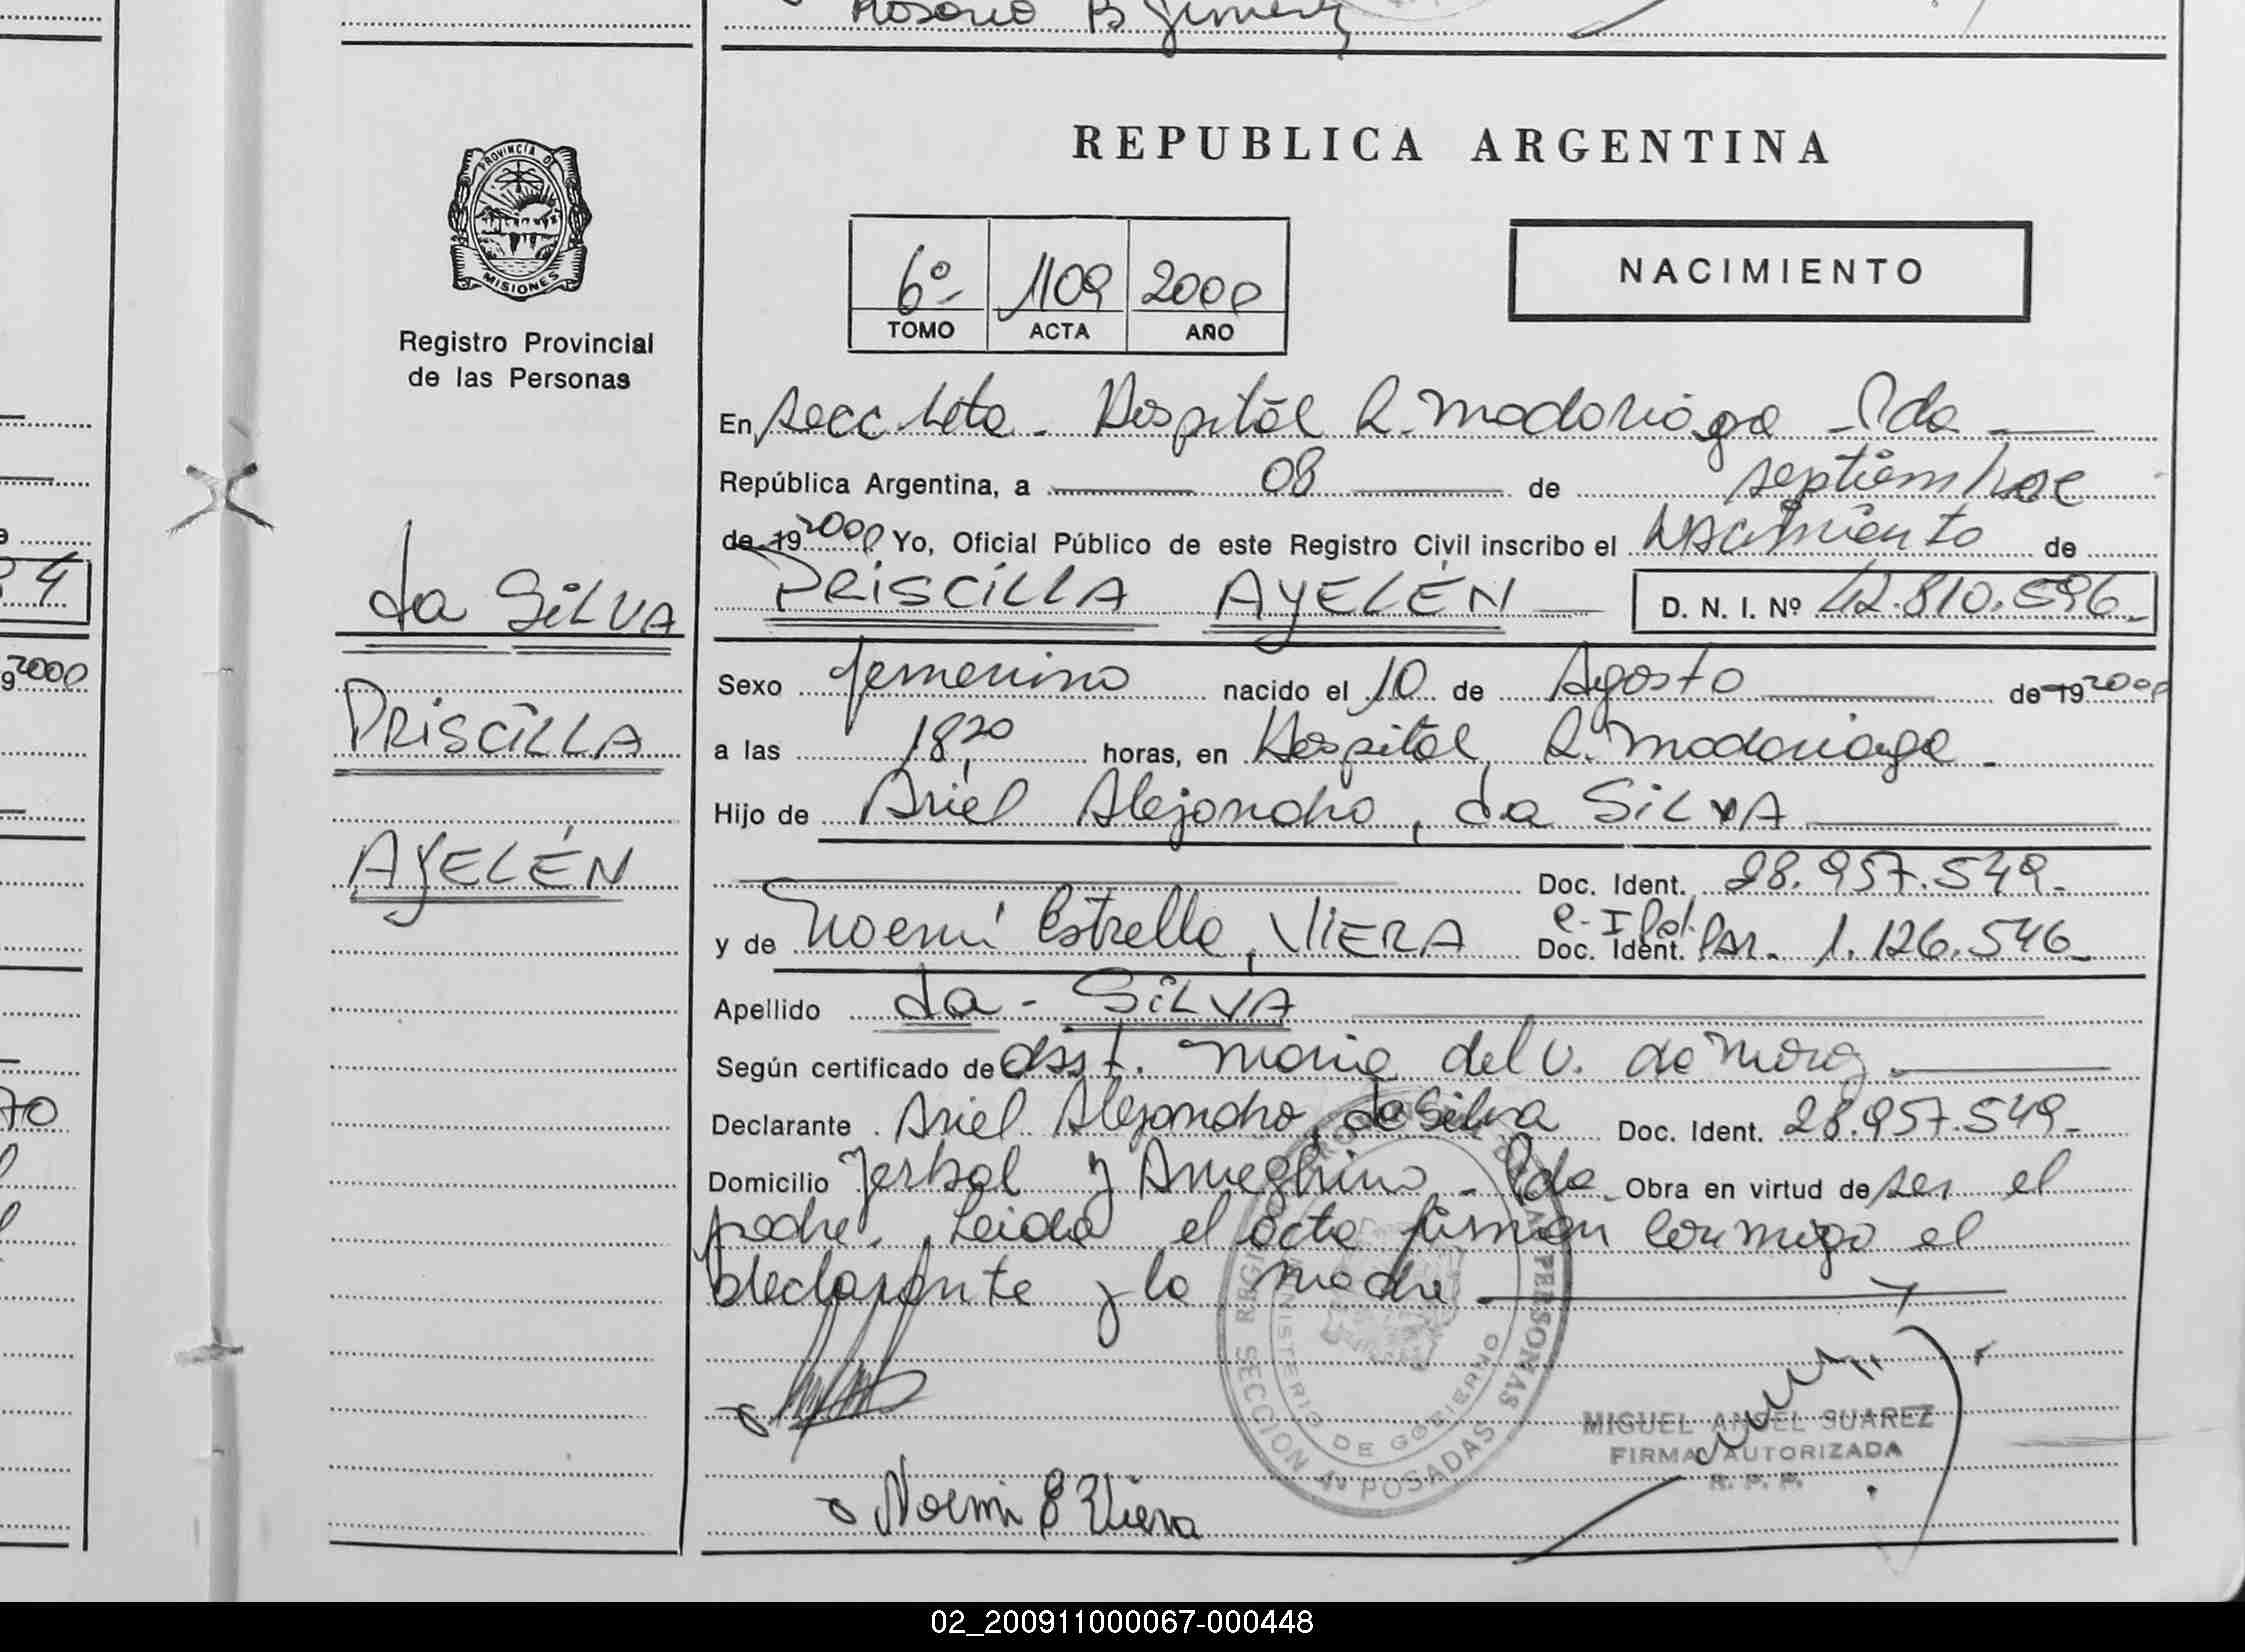 Rosario B Jimenez
REPUBLICA ARGENTINA
PROVINCIA DE
MISIONES
Registro Provincial
de las Personas
6º 1109 2000
TOMO ACTA AÑO
NACIMIENTO
En Secc 4ta - Hospital R. Madariaga - Pdas
República Argentina, a 08 de septiembre
de 19 2000 Yo, Oficial Público de este Registro Civil inscribo el Nacimiento de
PRISCILLA AYELÉN D. N. I. Nº 42.810.596
da SILVA
PRISCILLA
AYELÉN
Sexo femenino nacido el 10 de Agosto de 19 2000
a las 18,20 horas, en Hospital R. Madariaga -
Hijo de Ariel Alejandro, da SILVA
Doc. Ident. 28.957.549.-
y de Noemí Estrella, VIERA Doc. Ident. C. I Pol. Par. 1.126.546
Apellido da - SILVA
Según certificado de obst. Maria del V. de Mora
Declarante Ariel Alejandro, da Silva Doc. Ident. 28.957.549.-
Domicilio Yerbal y Ameghino - Pdas. Obra en virtud de ser el
padre. Leida el acta firman conmigo el
declarante y la madre
REGISTRO DE LAS PERSONAS
MINISTERIO DE GOBIERNO
SECCION 4ª POSADAS
MIGUEL ANGEL SUAREZ
FIRMA AUTORIZADA
R. P. P.
Noemi E Viera
02_200911000067-000448